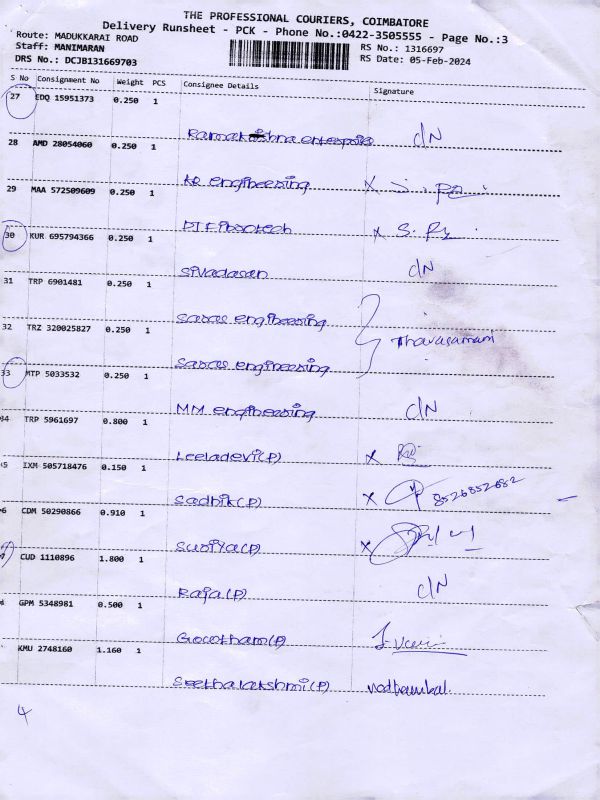 THE PROFESSIONAL COURIERS, COIMBATORE
Delivery Runsheet - PCK - Phone No.:0422-3505555 - Page No.:3
Route: MADUKKARAI ROAD
Staff: MANIMARAN
RS No.: 1316697
DRS No.: DCJB131669703
RS Date: 05-Feb-2024
S No Consignment No Weight PCS Consignee Details Signature
27 EDQ 15951373 0.250 1
C/N
28 AMD 28054060 0.250 1
engineering X
29 MAA 572509609 0.250 1
X
30 KUR 695794366 0.250 1
Sivadasan C/N
31 TRP 6901481 0.250 1
Saras engineering
32 TRZ 320025827 0.250 1
Saras engineering
33 MTP 5033532 0.250 1
MM engineering C/N
34 TRP 5961697 0.800 1
Leeladevi(P) X
IXM 505718476 0.150 1
Sadhik(P) X 8526852682
CDM 50290866 0.910 1
Suriya(P) X
CUD 1110896 1.800 1
Raja(P) C/N
GPM 5348981 0.500 1
KMU 2748160 1.160 1
Seethalakshmi(P)
4